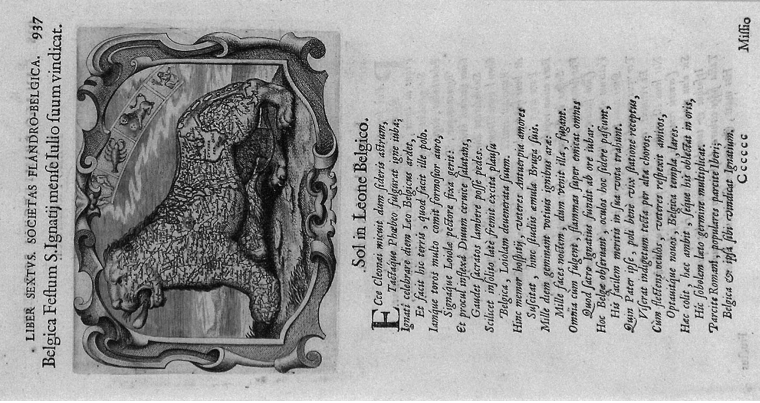 LIBER SEXTVS. SOCIETAS FLANDRO-BELGICA. 937
Belgica Festum S. Ignatij mense Iulio suum vindicat.
Sol in Leone Belgico.
Ecce Cleonæi micuit dum sideris astrum,
Tactaque Phœbeo fulgurat igne iuba;
Ignati celebrare diem Leo Belgicus ardet,
Et facit his terris, quod facit ille polo.
Iamque toris multo comit formosior auro,
Signaque Loiolæ pectore fixa gerit:
Et procul instantes Diuum ceruice salutans,
Gaudet sacratos lambere posse pedes.
Scilicet insolito late fremit excita plausu
Belgica, Loiolam demerata suum.
Hinc acuunt hastilia veteres Antuerpia amores
Suscitat, hinc studijs æmula Bruga suis.
Mille dies gemmant votiuis ignibus aræ:
Mille faces noctem, dum venit illa, fugant.
Omnia cum fulgent, flammas supereminet omnes
Quod sacer Ignatius fundit ab ore iubar.
Hoc Belgæ obseruant, oculos hoc sidere pascunt,
His facilem numeris in sua vota trahunt.
Quin Pater ipse, poli bene vix statione receptus,
Viserat indigetum tecta per alta chorum;
Cum flectens oculos, veteres respexit amicos,
Optauitque nouos, Belgica templa, lares.
Hæc colit, hæc ambit, seque his oblectat in oris,
Hic sobolem læto germine multiplicat.
Parcite Romani, populares parcite Iberi;
Belgica & ipsa sibi vindicat Ignatium.
Cccccc
Missio